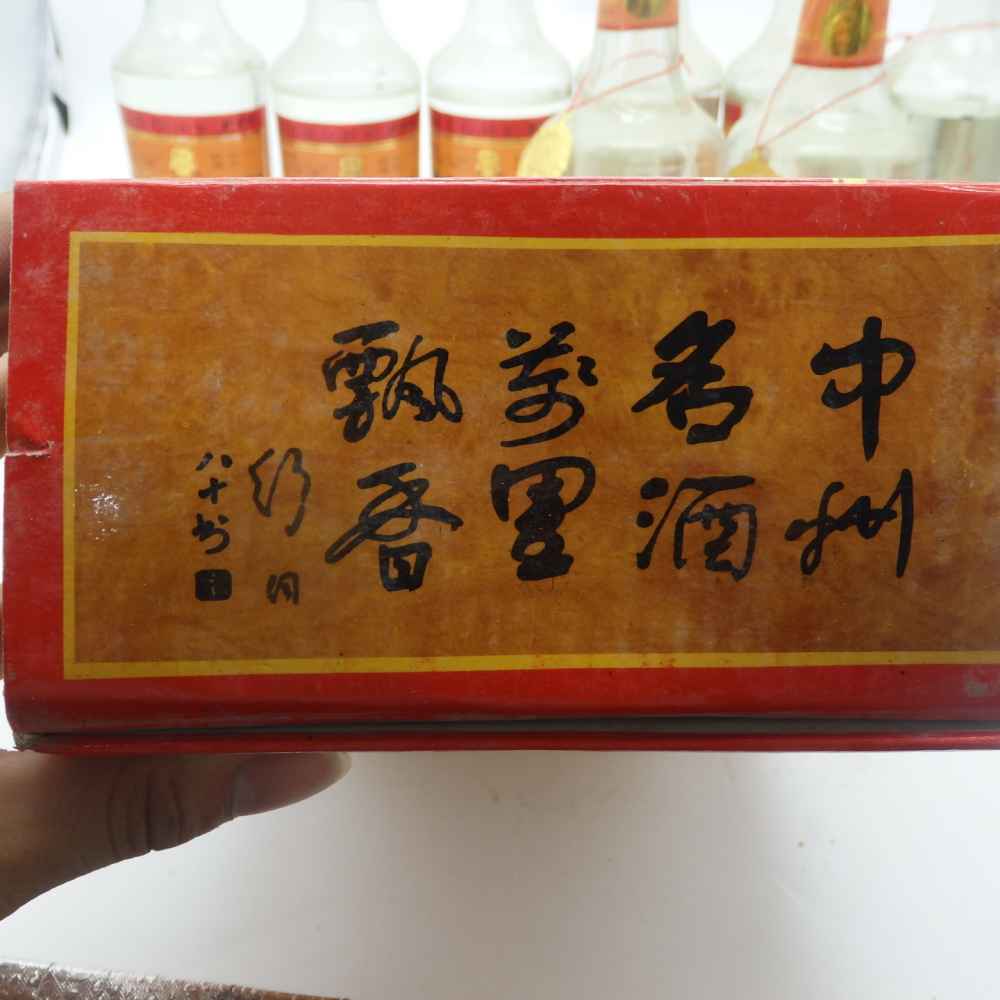 中州
名酒
萬里
飘香
八十书